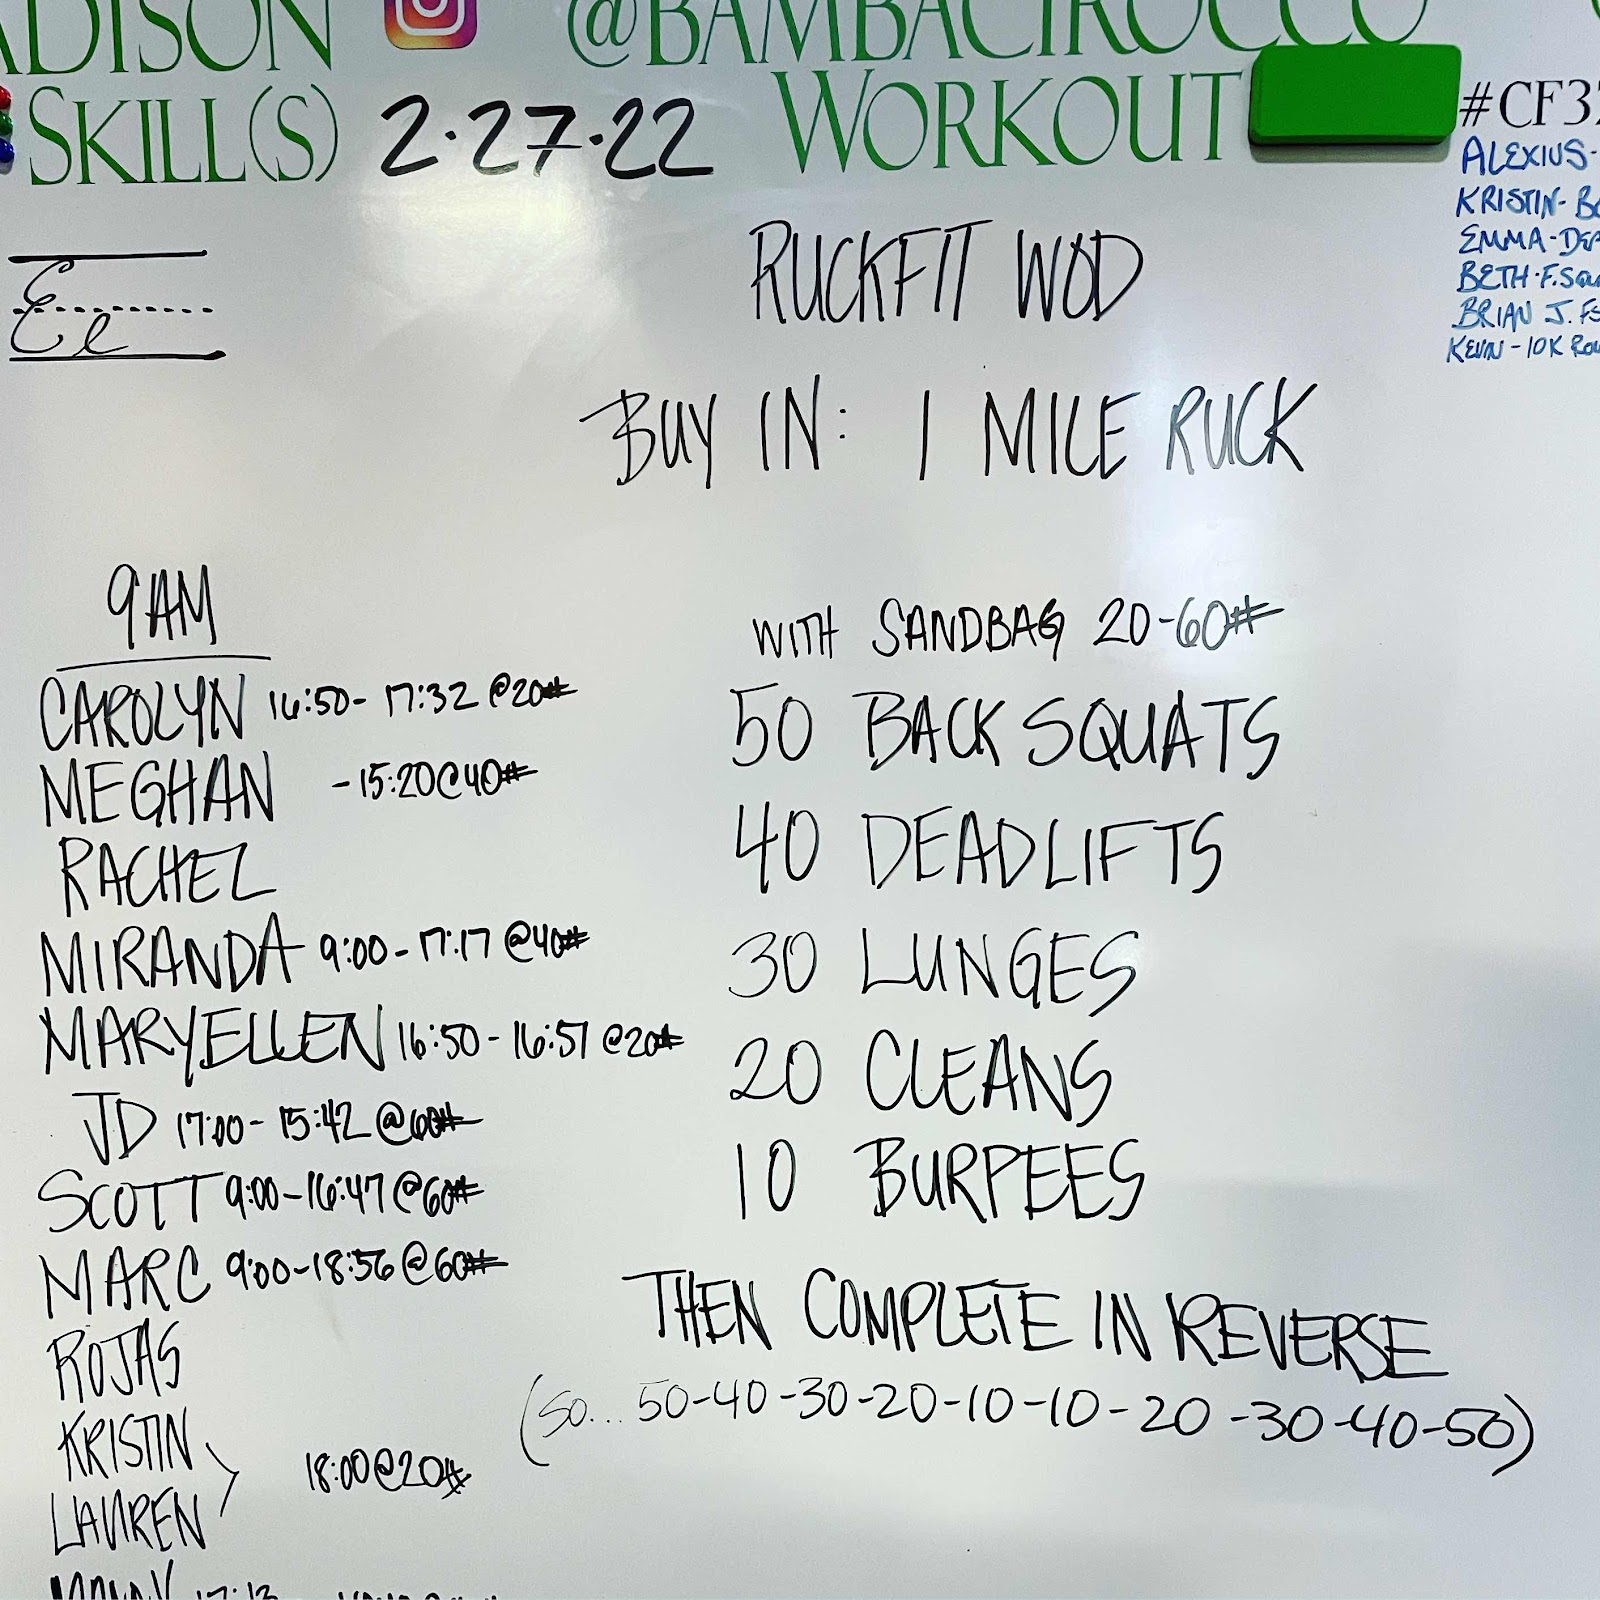 @BAMBACIROCCO
SKILL(S) 2.27.22 WORKOUT
#CF3
ALEXIUS-
KRISTIN-
EMMA-
BETH-
BRIAN J.
KEVIN - 10K
Ee
RUCKFIT WOD
BUY IN: 1 MILE RUCK
9AM
CAROLYN 16:50- 17:32 @20#
MEGHAN -15:20@40#
RACHEL
MIRANDA 9:00-17:17 @40#
MARYELLEN 16:50-16:57 @20#
JD 17:00- 15:42 @60#
SCOTT 9:00-16:47@60#
MARC 9:00-18:56@60#
ROJAS
KRISTIN
LAUREN 18:00@20#
WITH SANDBAG 20-60#
50 BACK SQUATS
40 DEADLIFTS
30 LUNGES
20 CLEANS
10 BURPEES
THEN COMPLETE IN REVERSE
(SO... 50-40-30-20-10-10-20-30-40-50)